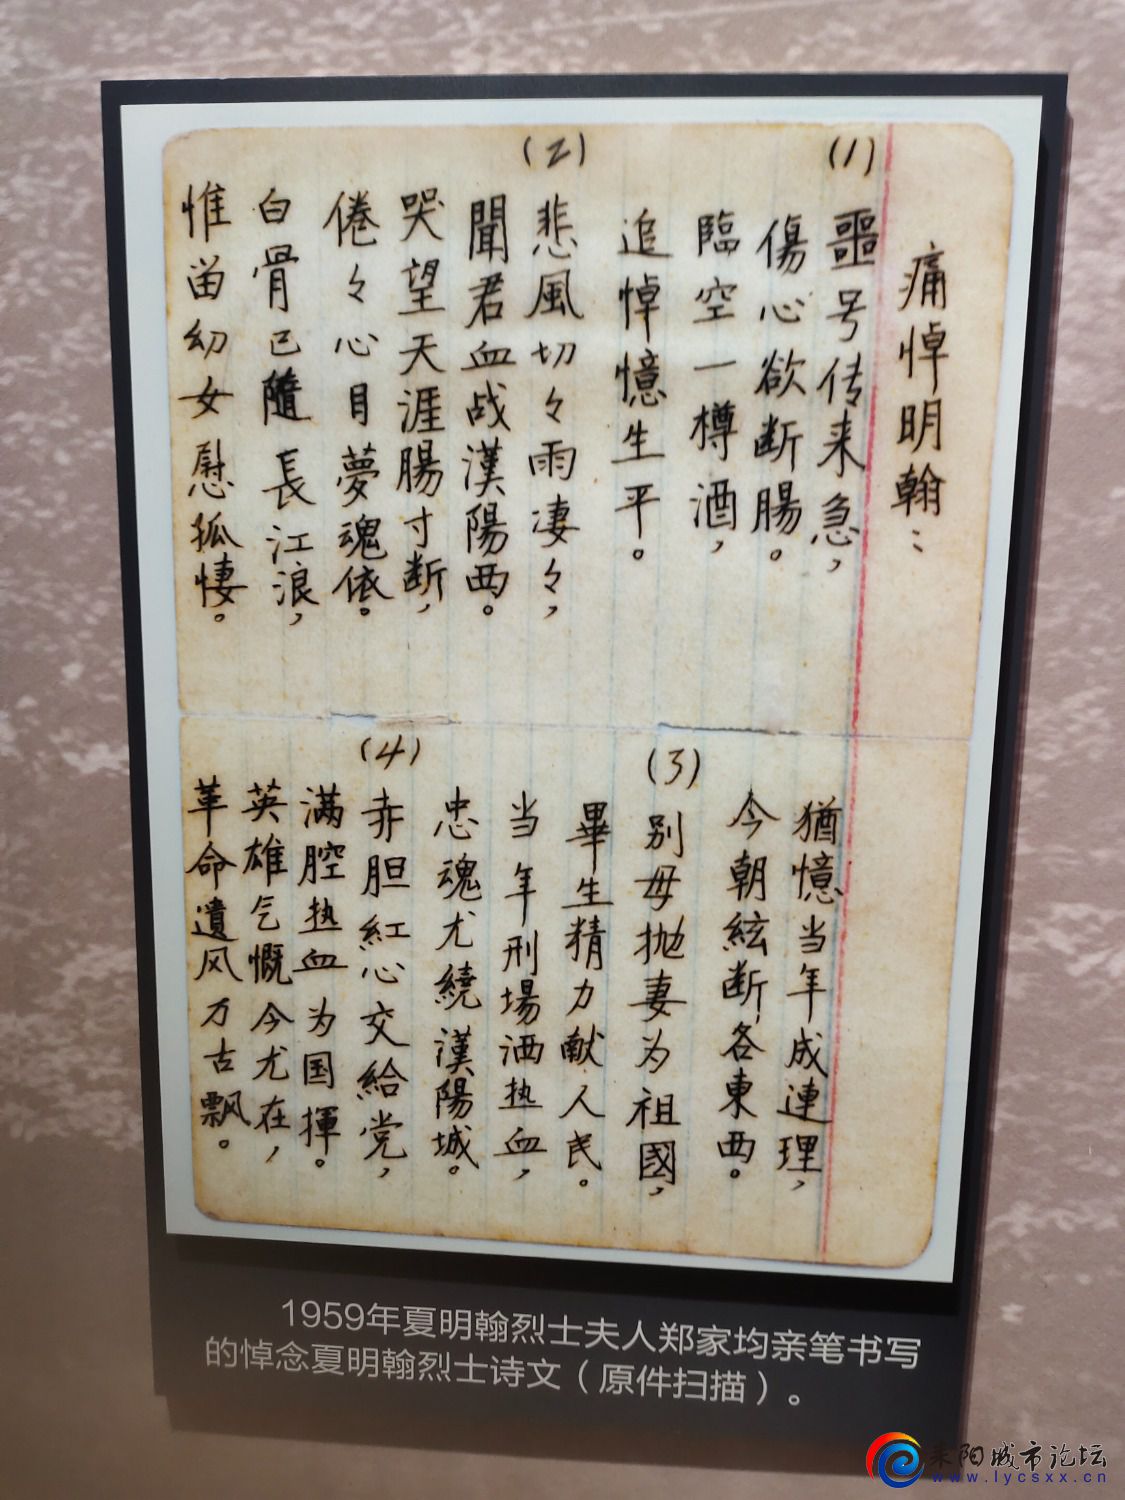 痛悼明翰：
(1)
噩号传来急，
傷心欲断腸。
臨空一樽酒，
追悼憶生平。
(2)
悲風切々雨凄々，
聞君血战漢陽西。
哭望天涯腸寸断，
倦々心目夢魂依。
白骨已隨長江浪，
惟畄幼女慰孤悽。
猶憶当年成連理，
今朝絃断各東西。
(3)
别母抛妻为祖國，
畢生精力献人民。
当年刑場洒热血，
忠魂尤繞漢陽城。
(4)
赤胆紅心交給党，
满腔热血为国揮。
英雄气慨今尤在，
革命遺风万古飘。
1959年夏明翰烈士夫人郑家均亲笔书写
的悼念夏明翰烈士诗文（原件扫描）。
耒阳城市论坛
www.lycsxx.cn